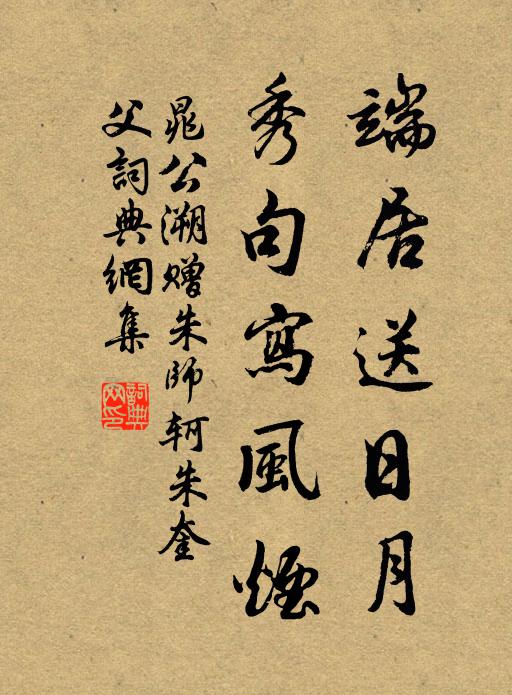 端居送日月
秀句寫風煙
晁公溯贈朱師軻朱奎
父詞典網集
詞典網印